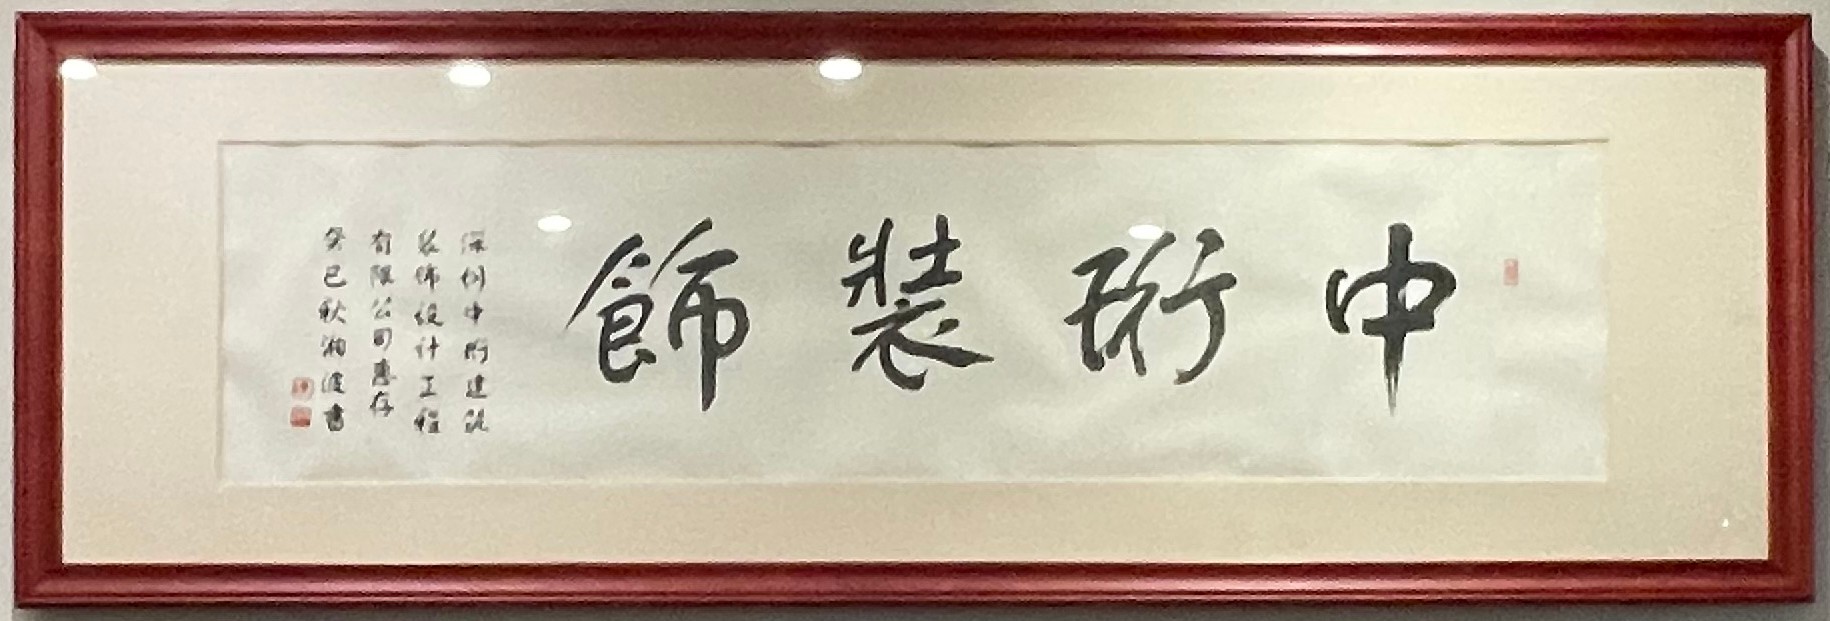 中珩装飾
深圳中珩建筑
装饰设计工程
有限公司惠存
癸巳秋湘波書